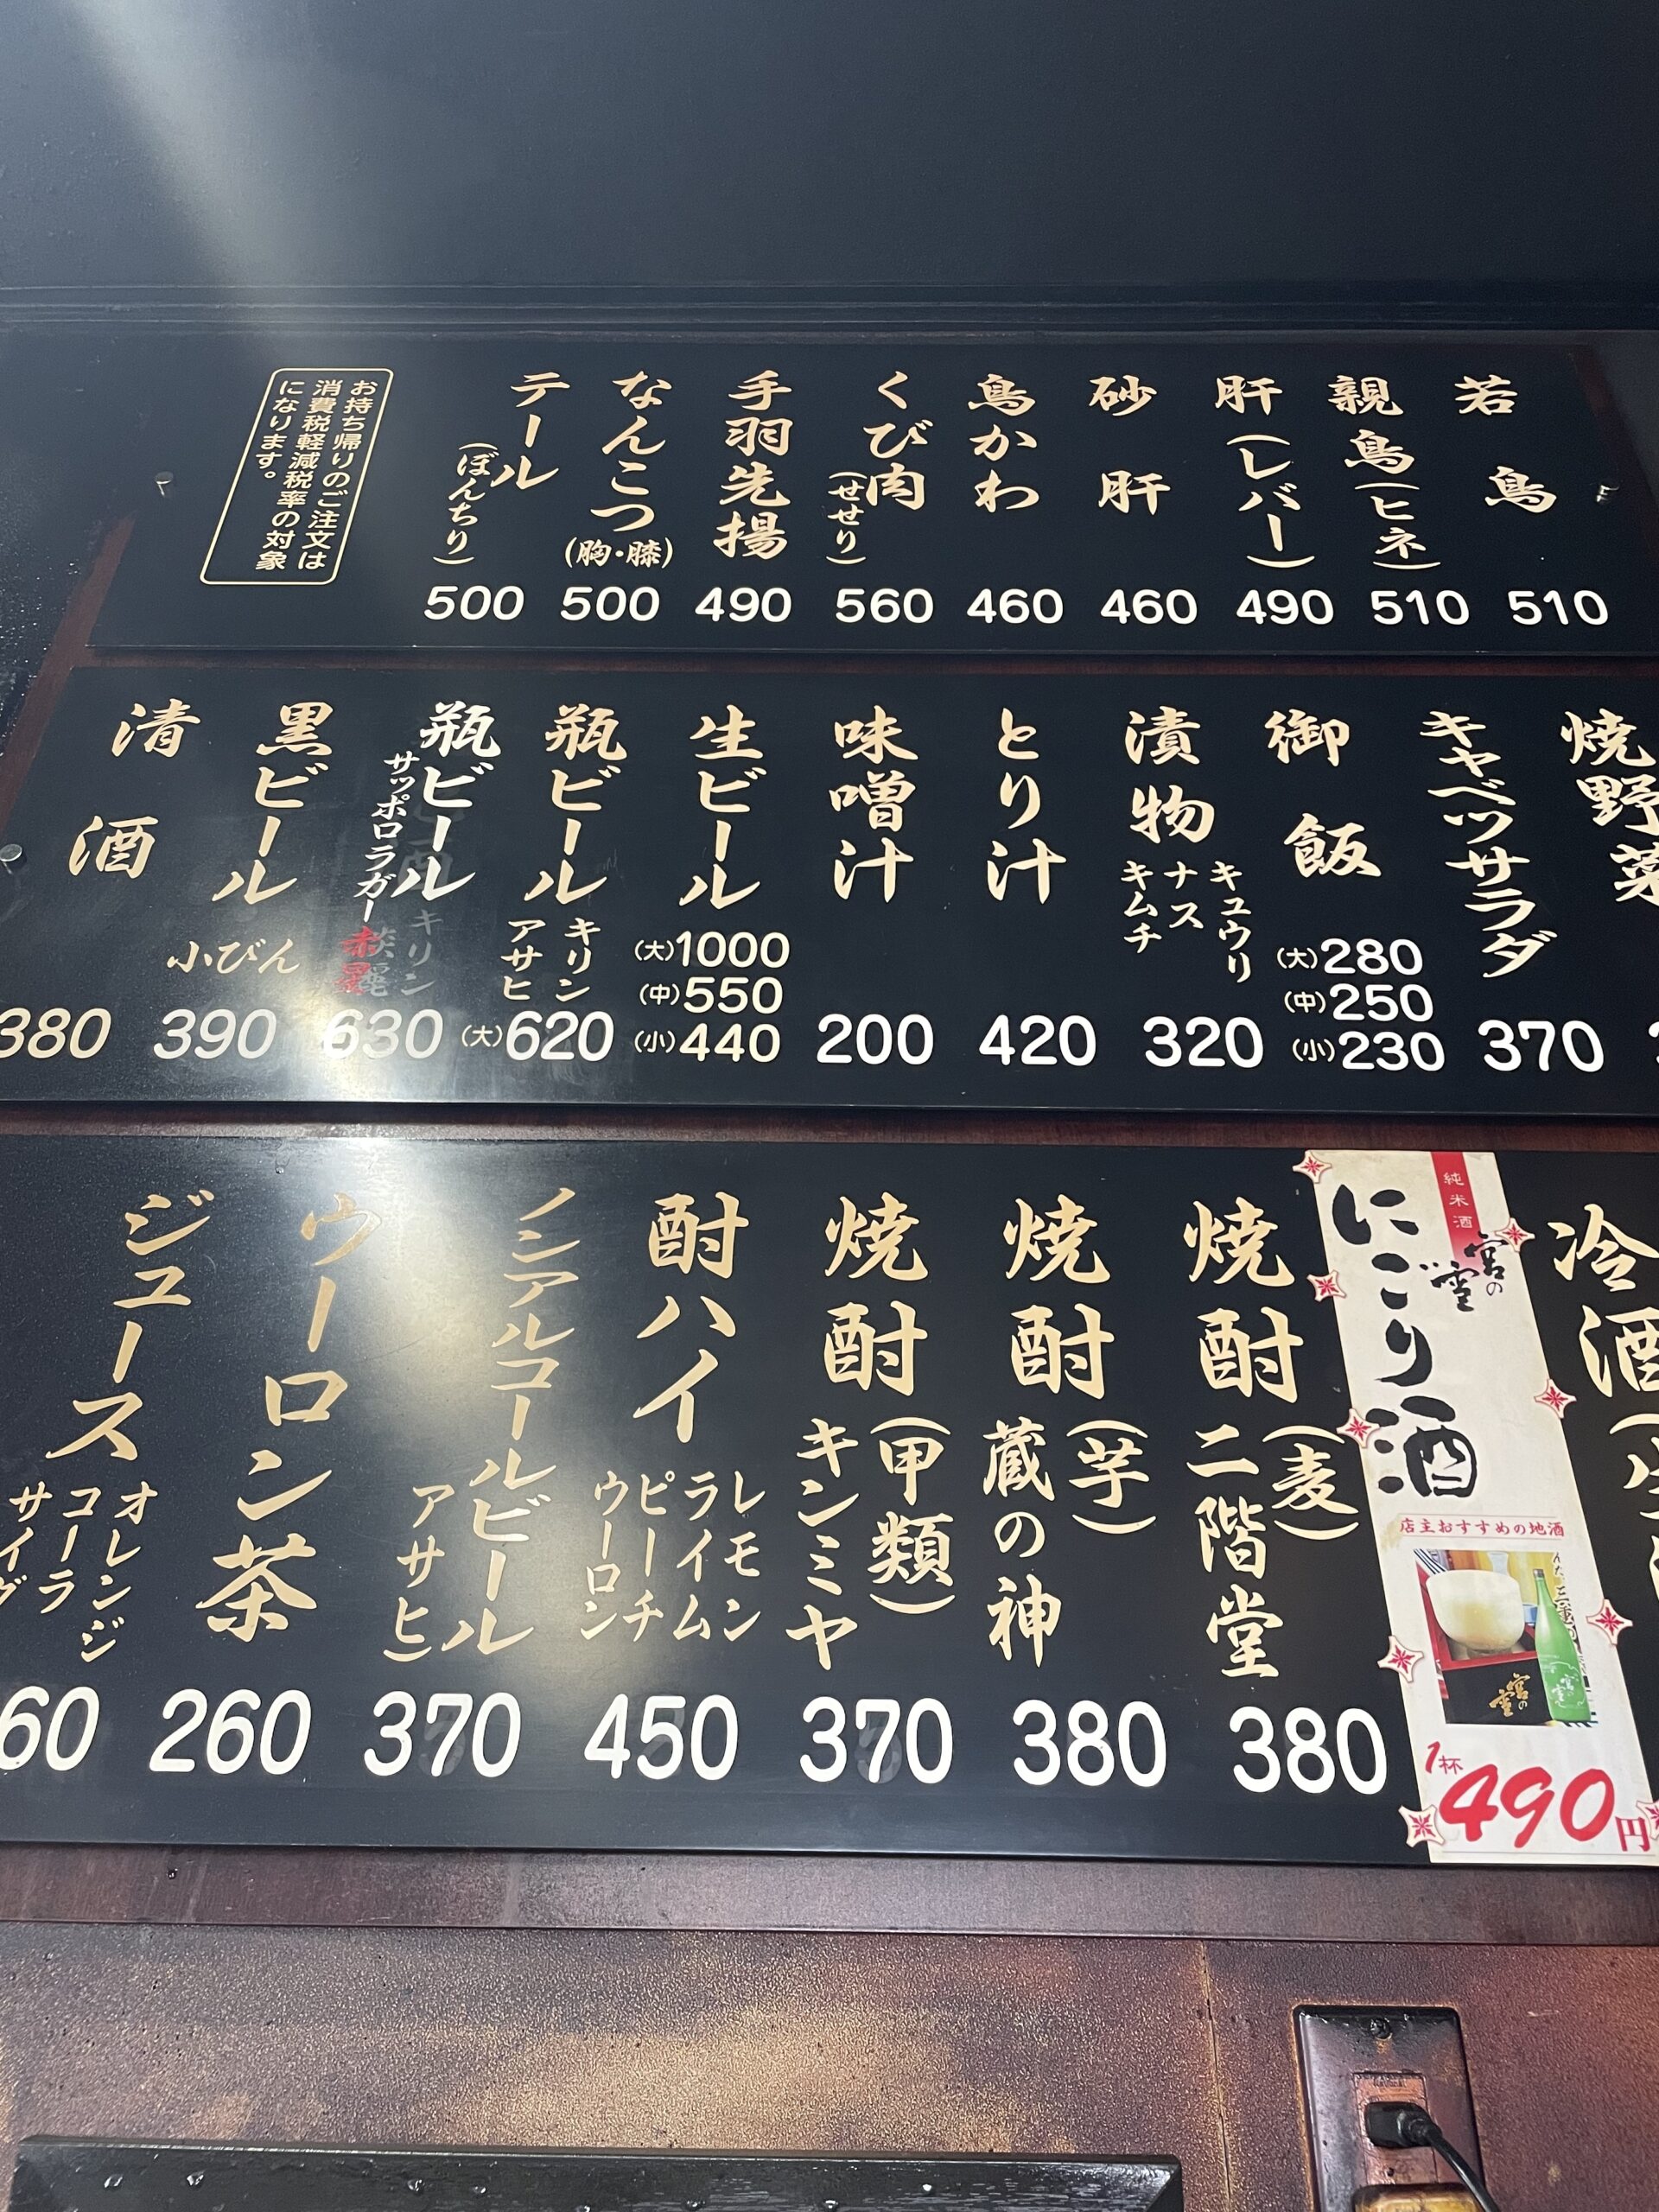 若鳥
510
親鳥(ヒネ)
510
肝(レバー)
490
砂肝
460
鳥かわ
460
くび肉
(せせり)
560
手羽先揚
490
なんこつ(胸・膝)
500
テール
(ぼんちり)
500
お持ち帰りのご注文は
消費税軽減税率の対象
になります。
焼野菜
キャベツサラダ
370
御飯
(大)280
(中)250
(小)230
漬物
キュウリ
ナス
キムチ
320
とり汁
420
味噌汁
200
生ビール
(大)1000
(中)550
(小)440
瓶ビール
キリン
アサヒ
(大)620
瓶ビール
サッポロラガー赤星
630
黒ビール
小びん
390
清酒
380
冷酒
純米酒
宮の雪
にごり酒
店主おすすめの地酒
1杯490円
焼酎(麦)
二階堂
380
焼酎(芋)
蔵の神
380
焼酎(甲類)
キンミヤ
370
酎ハイ
レモン
ライム
ピーチ
ウーロン
450
ノンアルコールビール
アサヒ)
370
ウーロン茶
260
ジュース
オレンジ
コーラ
サイダ
60